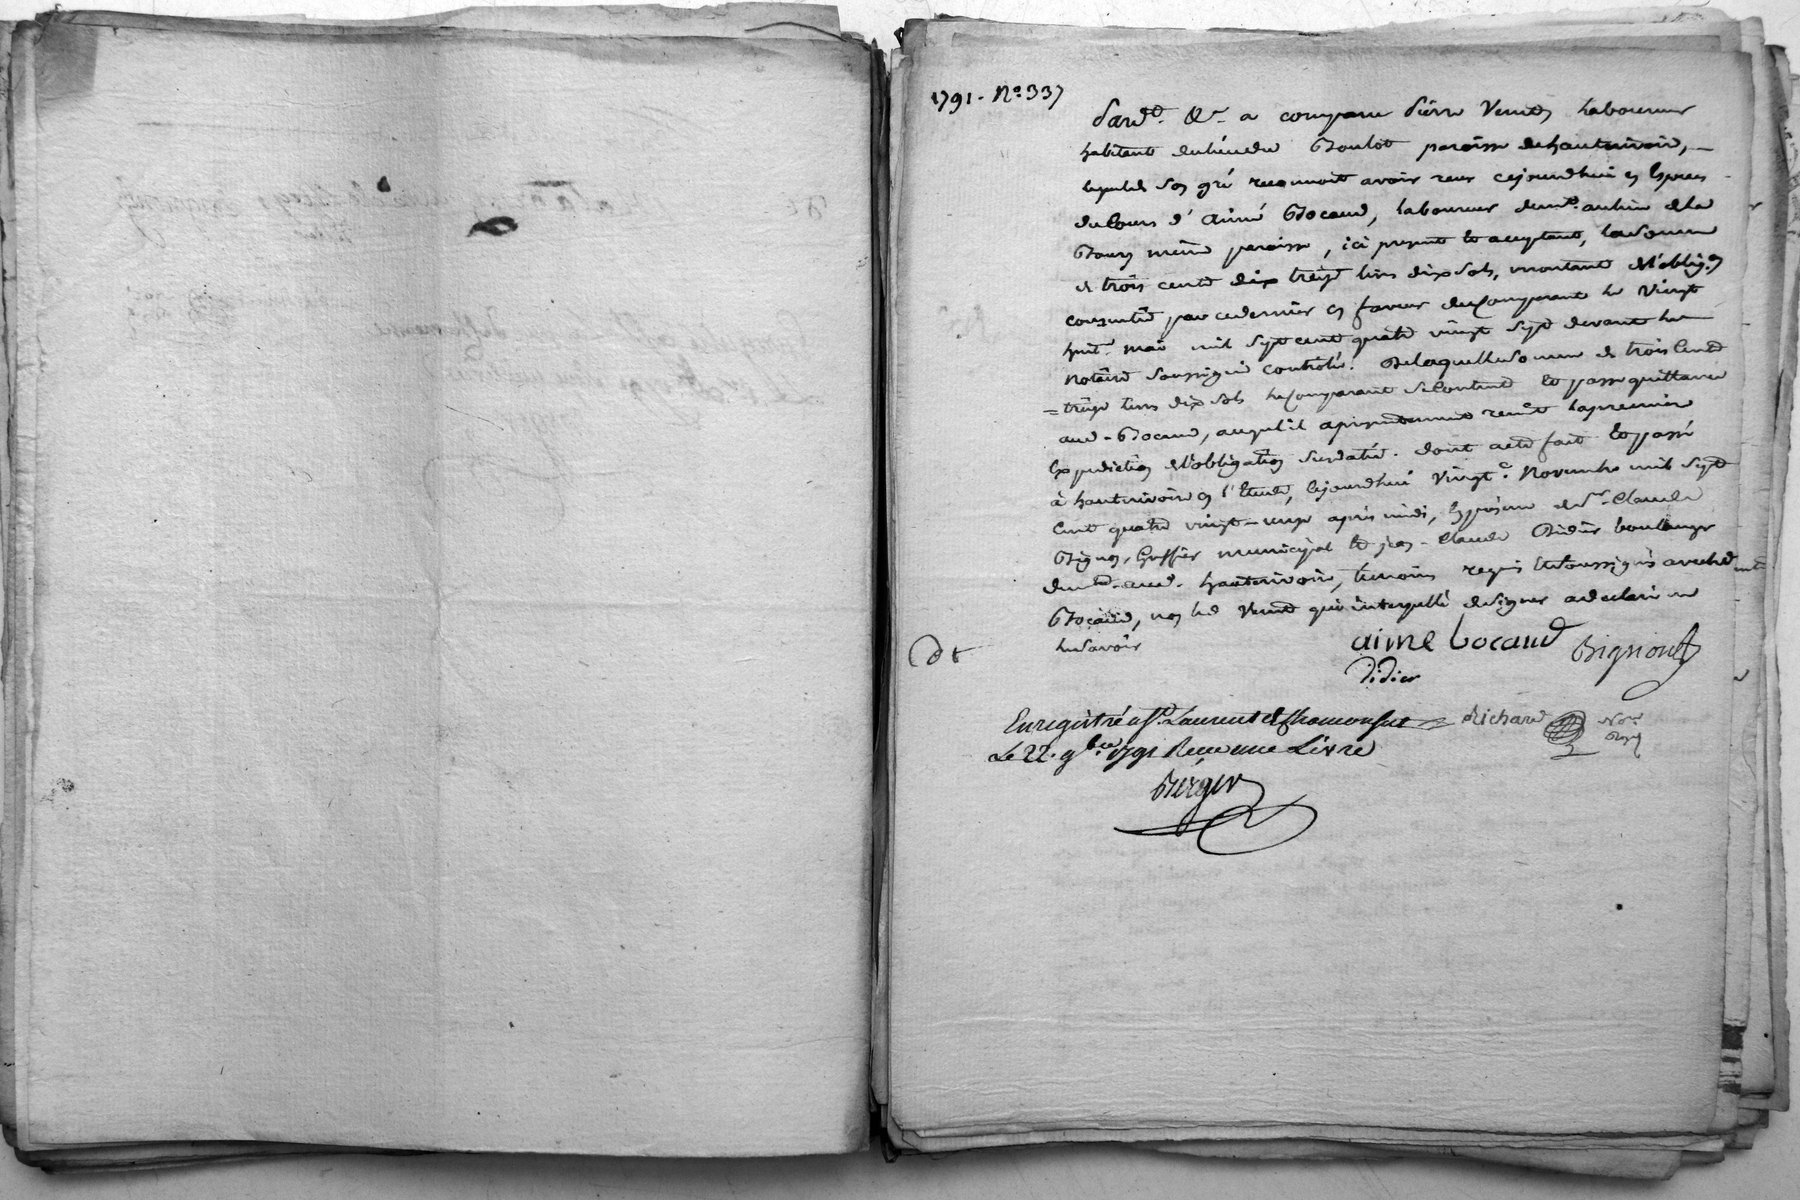 1791. No. 337
Pard.t &c. a comparu Pierre Venet, laboureur
habitant du lieu du Boulot paroisse de hauterivoire,
lequel de son gré reconnoit avoir reçu cejourdhui en Especes
du Cours d'aimé Bocaud, laboureur demt. au lieu de la
Bourg même paroisse, ici present Et acceptant, la Somme
de trois cent dix treize livres dix sols, montant de l'oblig.on
consentie par ce dernier en faveur du Comparant le vingt
huit. mai mil sept cent quatre vingt sept devant le
notaire soussigné controlée. De laquelle somme de trois Cent
= treize livres dix sols le Comparant se Contente Et passe quittance
aud. Bocaud, auquel il a présentement remit la premiere
Expedition de l'obligation susdatée. dont acte fait Et passé
à hauterivoire en l'Etude, Cejourdhui vingt.e Novembre mil sept
Cent quatre vingt-onze après midi, En présence de Sr. Claude
Bignon, Greffier municipal Et jean-Claude Didier boulanger
demt. aud. hauterivoire, temoins requis Et soussignés avec led.
Bocaud, non led. Venet qui interpellé de signer a declaré ne
le savoir
dt
aime bocaud
Bignon
Didier
Enregistré a St. Laurent de Chamousset
Richard Nore
Le 22. 9bre 1791 Reçu une Livre
Berger